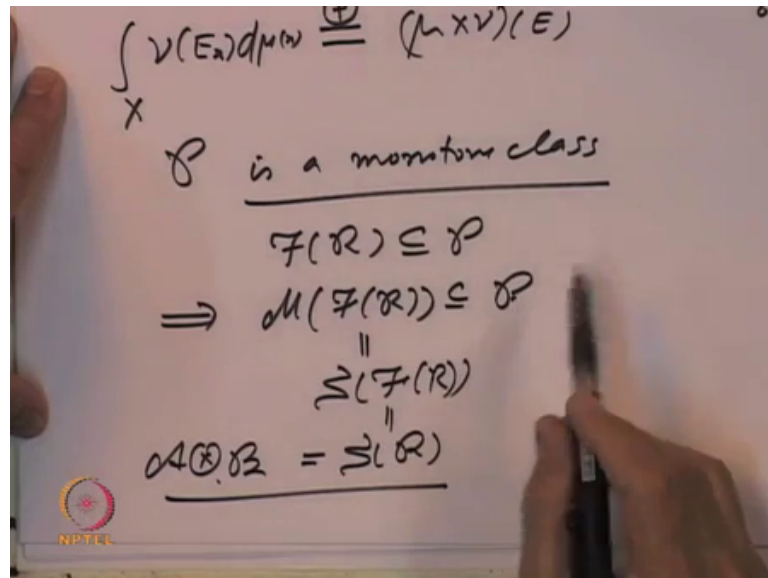 ∫_X ν(E_x) dμ(x) ⊕= (μ × ν)(E)
𝒫 is a monotone class
𝓕(𝓡) ⊆ 𝒫
⟹ 𝓜(𝓕(𝓡)) ⊆ 𝒫
||
𝒮(𝓕(𝓡))
||
𝒜 ⊗ 𝓑 = 𝒮(𝓡)
NPTEL